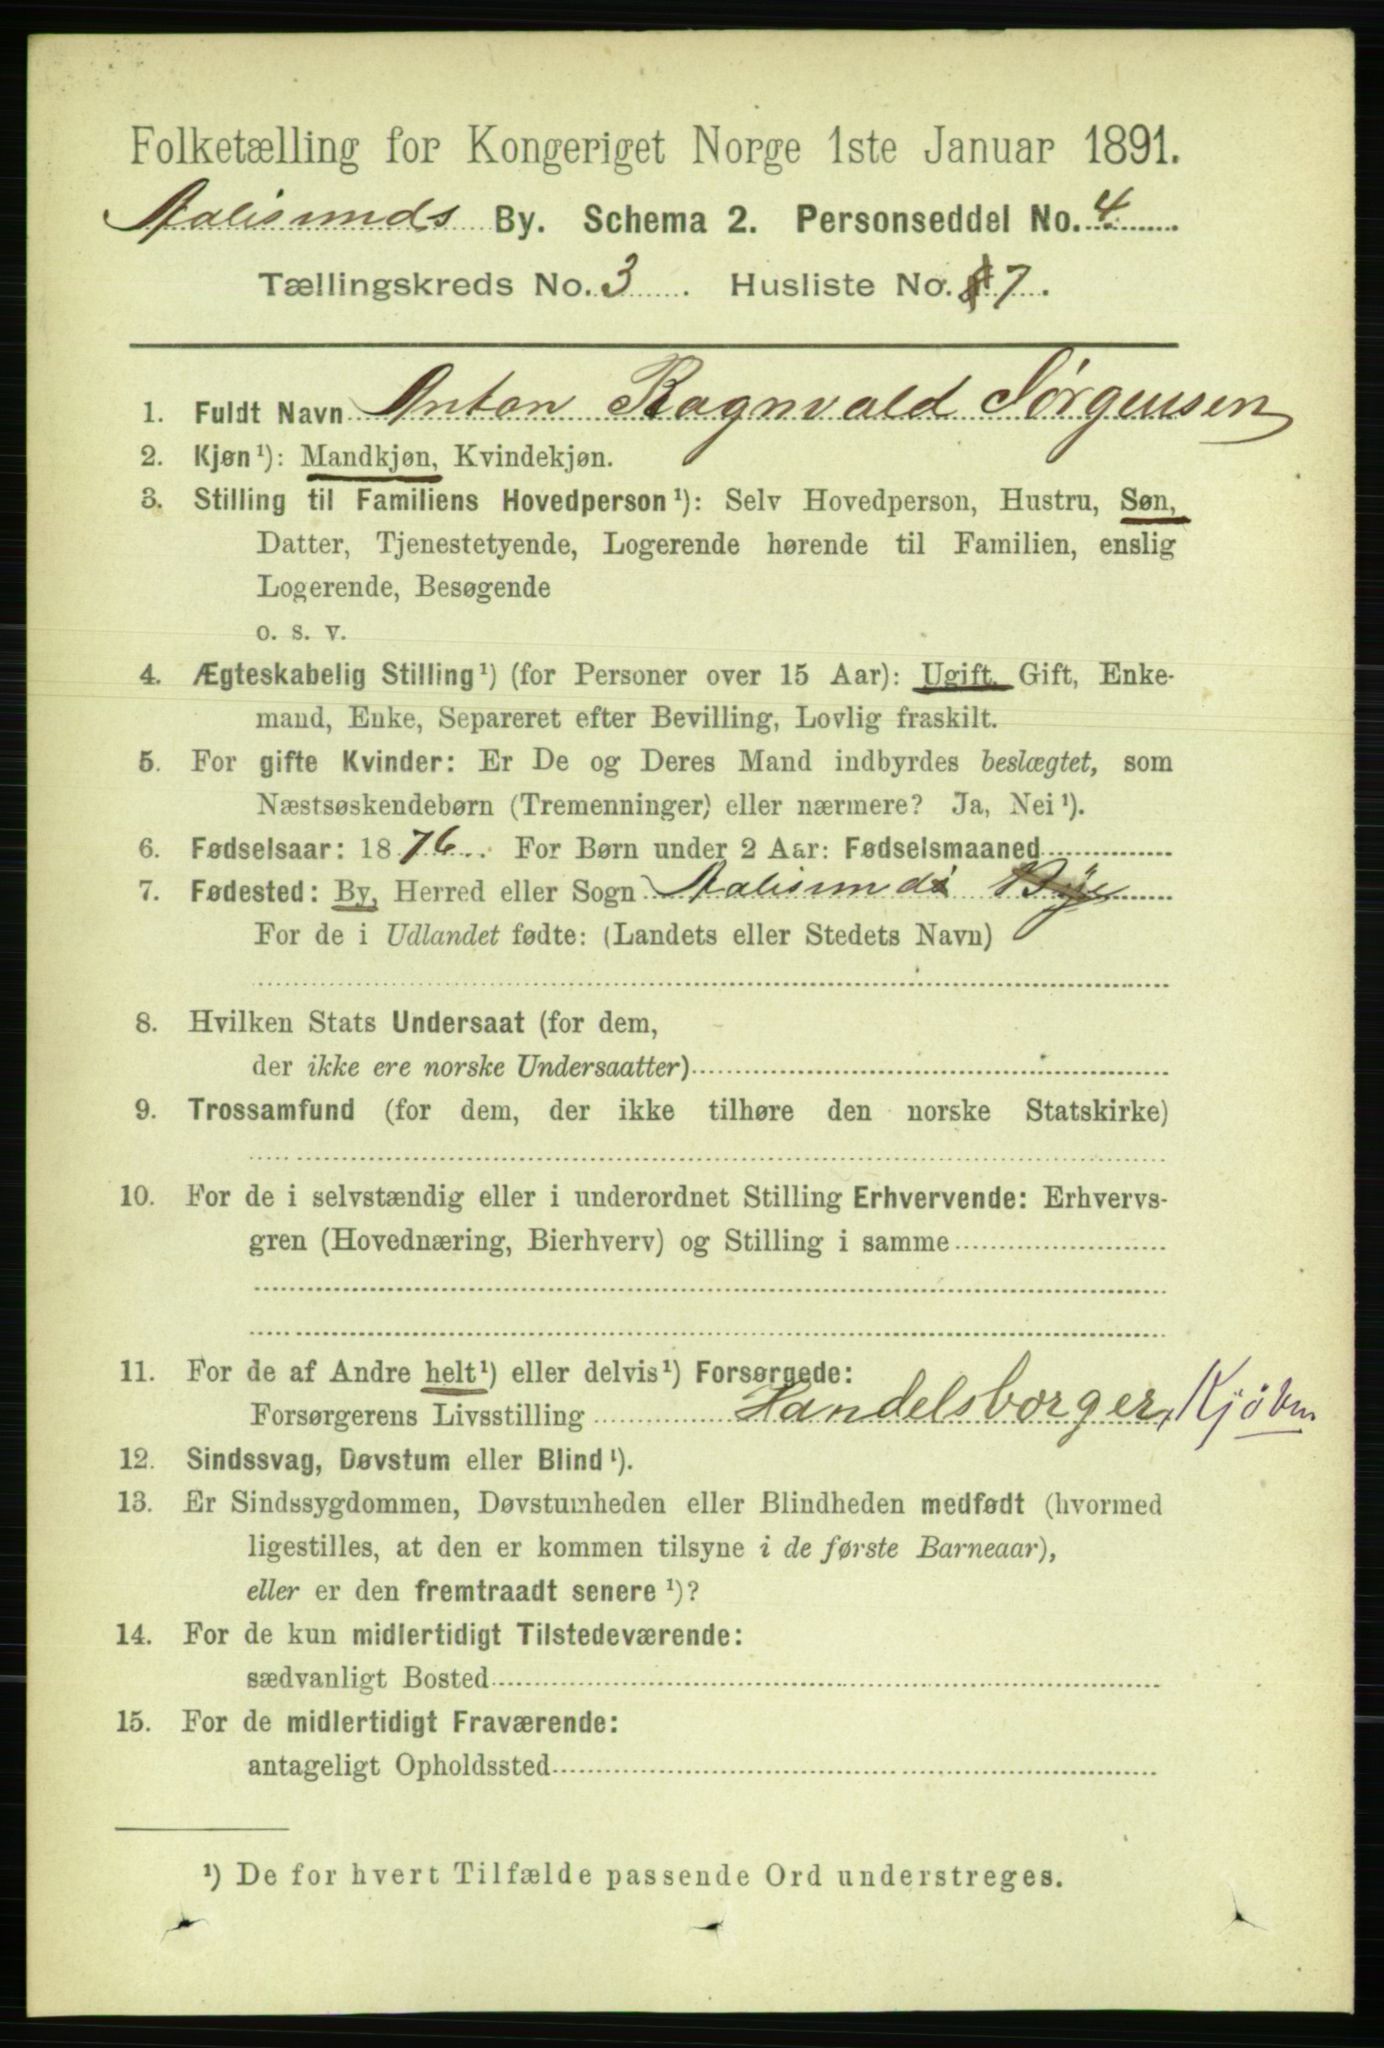 Folketælling for Kongeriget Norge 1ste Januar 1891.
Aalesunds By. Schema 2. Personseddel No. 4
Tællingskreds No. 3 Husliste No. 7.
1. Fuldt Navn Anton Ragnvald Jørgensen
2. Kjøn¹): Mandkjøn, Kvindekjøn.
3. Stilling til Familiens Hovedperson¹): Selv Hovedperson, Hustru, Søn,
Datter, Tjenestetyende, Logerende hørende til Familien, enslig
Logerende, Besøgende
o. s. v.
4. Ægteskabelig Stilling¹) (for Personer over 15 Aar): Ugift, Gift, Enke-
mand, Enke, Separeret efter Bevilling, Lovlig fraskilt.
5. For gifte Kvinder: Er De og Deres Mand indbyrdes beslægtet, som
Næstsøskendebørn (Tremenninger) eller nærmere? Ja, Nei¹).
6. Fødselsaar: 1876. For Børn under 2 Aar: Fødselsmaaned
7. Fødested: By, Herred eller Sogn Aalesund Bye
For de i Udlandet fødte: (Landets eller Stedets Navn)
8. Hvilken Stats Undersaat (for dem,
der ikke ere norske Undersaatter)
9. Trossamfund (for dem, der ikke tilhøre den norske Statskirke)
10. For de i selvstændig eller i underordnet Stilling Erhvervende: Erhvervs-
gren (Hovednæring, Bierhverv) og Stilling i samme
11. For de af Andre helt¹) eller delvis¹) Forsørgede:
Forsørgerens Livsstilling Handelsborger, Kjøbm
12. Sindssvag, Døvstum eller Blind¹).
13. Er Sindssygdommen, Døvstumheden eller Blindheden medfødt (hvormed
ligestilles, at den er kommen tilsyne i de første Barneaar),
eller er den fremtraadt senere¹)?
14. For de kun midlertidigt Tilstedeværende:
sædvanligt Bosted
15. For de midlertidigt Fraværende:
antageligt Opholdssted
¹) De for hvert Tilfælde passende Ord understreges.